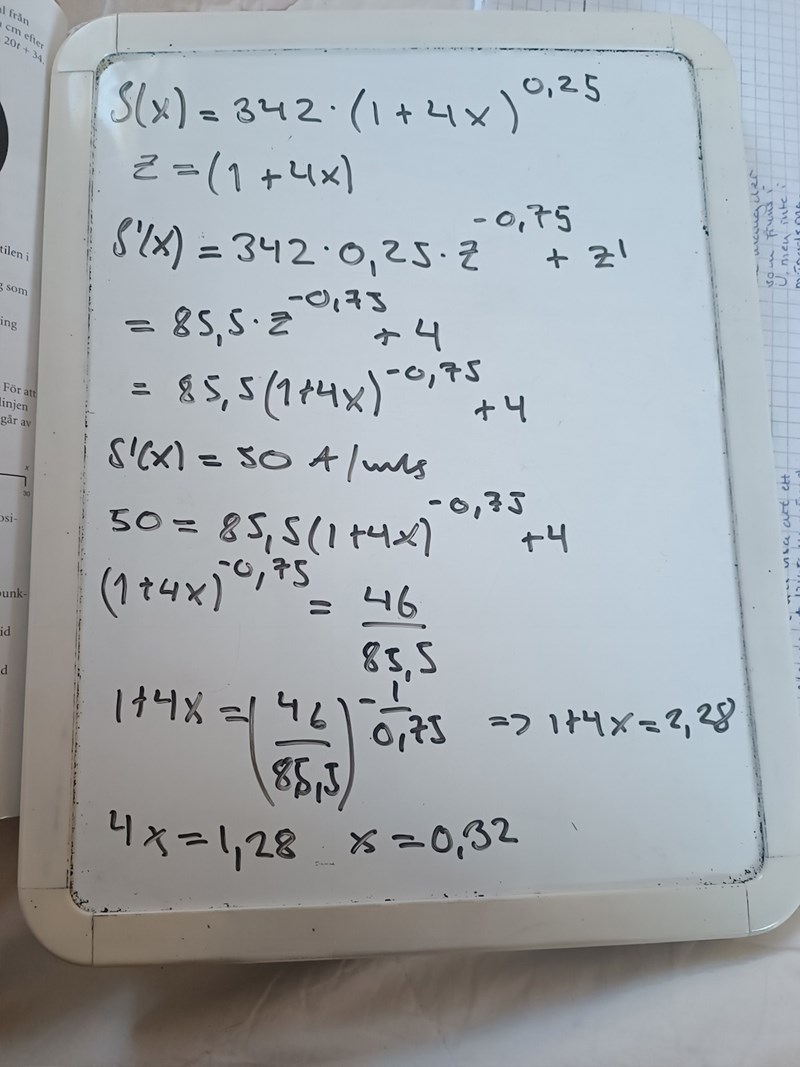 l från
cm efter
20t + 34.
tilen i
g som
ing
För att
linjen
går av
50
osi-
ounk-
id
d
S(x) = 342 · (1 + 4x)^0,25
z = (1 + 4x)
S'(x) = 342 · 0,25 · z^-0,75 + z'
= 85,5 · z^-0,75 + 4
= 85,5(1+4x)^-0,75 + 4
S'(x) = 50 A/mls
50 = 85,5(1+4x)^-0,75 + 4
(1+4x)^-0,75 = 46/85,5
1+4x = (46/85,5)^-1/0,75 => 1+4x = 2,28
4x = 1,28 x = 0,32